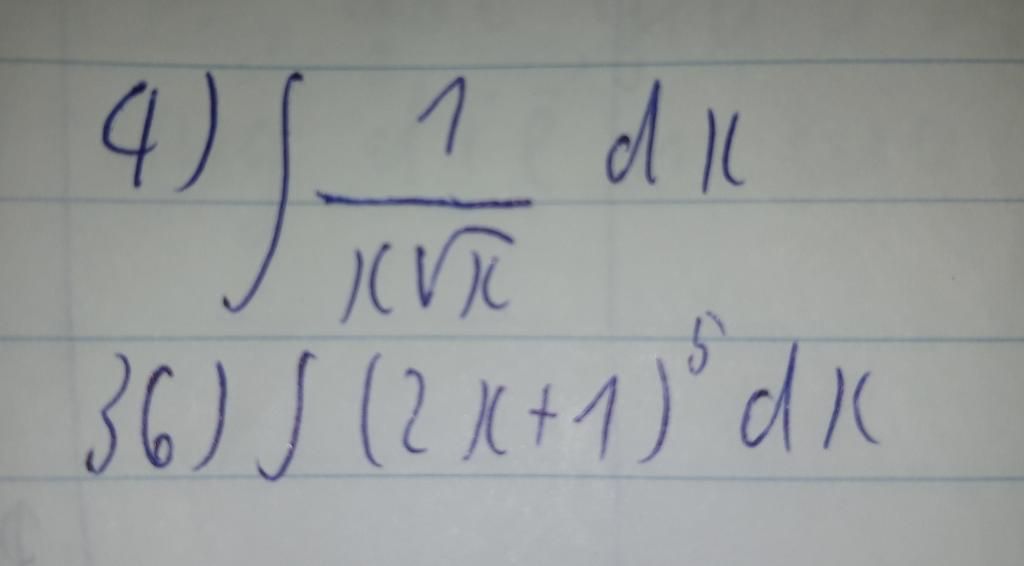 4) ∫ 1/(x√x) dx
36) ∫ (2x+1)⁵ dx